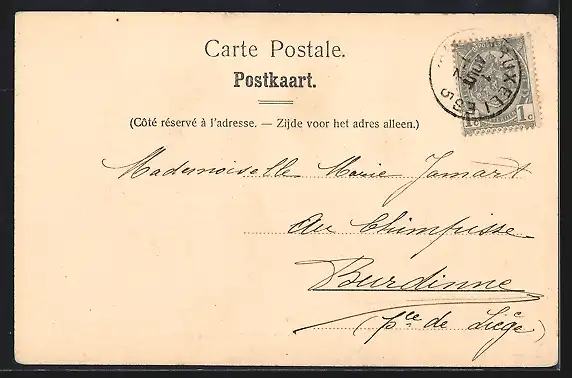 Carte Postale.
Postkaart.
(Côté réservé à l'adresse. — Zijde voor het adres alleen.)
Mademoiselle Marie Jamart
au Chimpisse
Burdinne
(pce de Liége)
1c 1c
BRUXELLES 5
AOUT